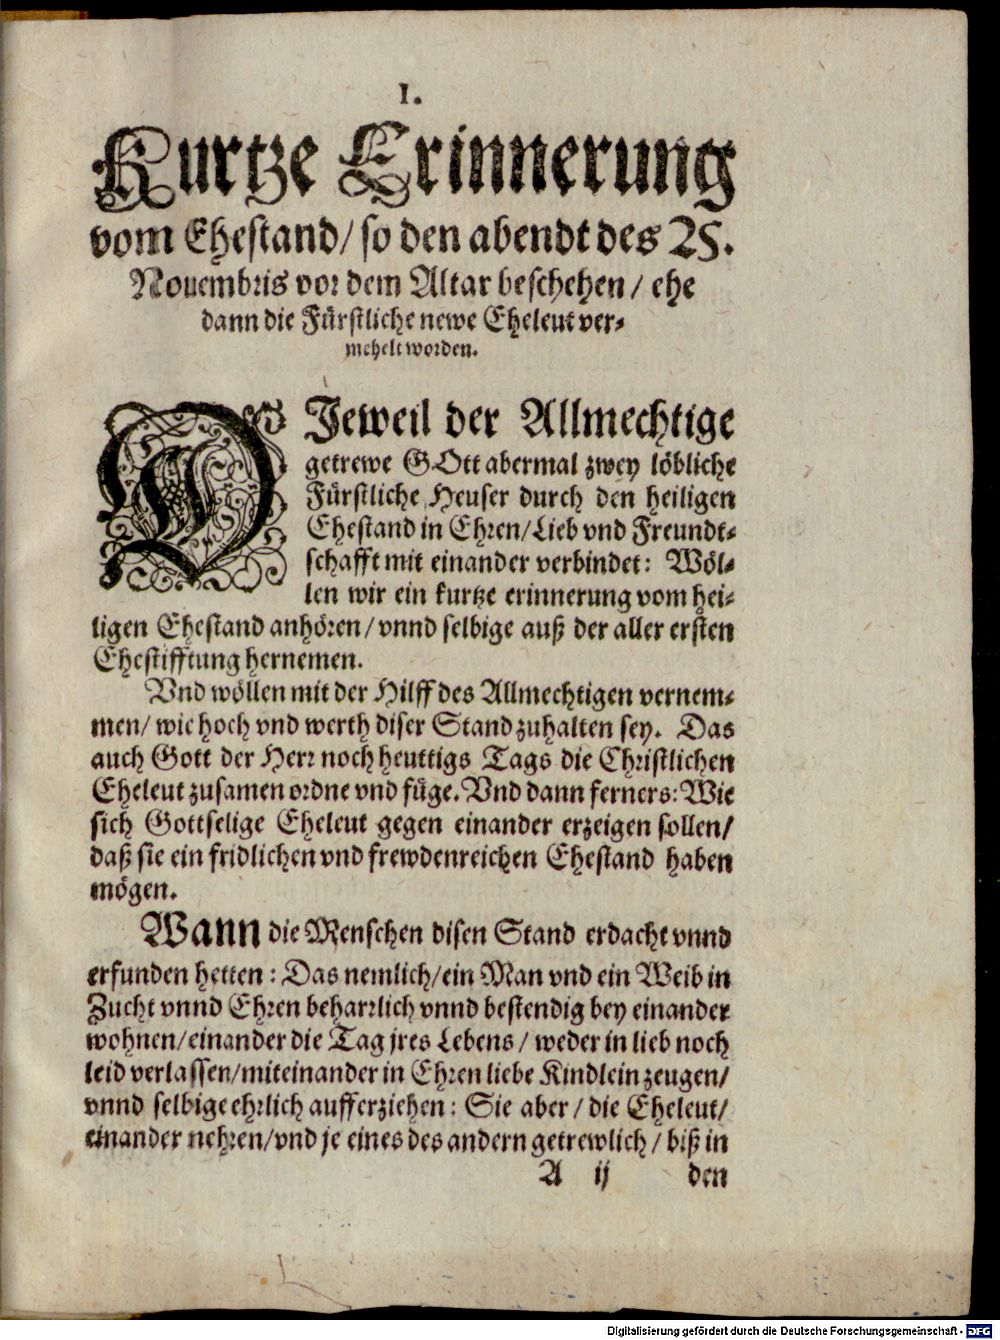 I.
Kurtze Erinnerung
vom Ehestand/ so den abendt des 25.
Nouembris vor dem Altar beschehen/ ehe
dann die Fürstliche newe Eheleut ver-
mehelt worden.
DJeweil der Allmechtige
getrewe GOtt abermal zwey löbliche
Fürstliche Heuser durch den heiligen
Ehestand in Ehren/ Lieb vnd Freundt-
schafft mit einander verbindet: Wöl-
len wir ein kurtze erinnerung vom hei-
ligen Ehestand anhören/ vnnd selbige auß der aller ersten
Ehestifftung hernemen.
Vnd wöllen mit der Hilff des Allmechtigen vernem-
men/ wie hoch vnd werth diser Stand zuhalten sey. Das
auch Gott der Herr noch heuttigs Tags die Christlichen
Eheleut zusamen ordne vnd füge. Vnd dann ferners: Wie
sich Gottselige Eheleut gegen einander erzeigen sollen/
daß sie ein fridlichen vnd frewdenreichen Ehestand haben
mögen.
Wann die Menschen disen Stand erdacht vnnd
erfunden hetten: Das nemlich/ ein Man vnd ein Weib in
Zucht vnnd Ehren beharrlich vnnd bestendig bey einander
wohnen/ einander die Tag jres Lebens/ weder in lieb noch
leid verlassen/ miteinander in Ehren liebe Kindlein zeugen/
vnnd selbige ehrlich aufferziehen: Sie aber/ die Eheleut/
einander nehren/ vnd je eines des andern getrewlich/ biß in
A ij den
Digitalisierung gefördert durch die Deutsche Forschungsgemeinschaft - DFG